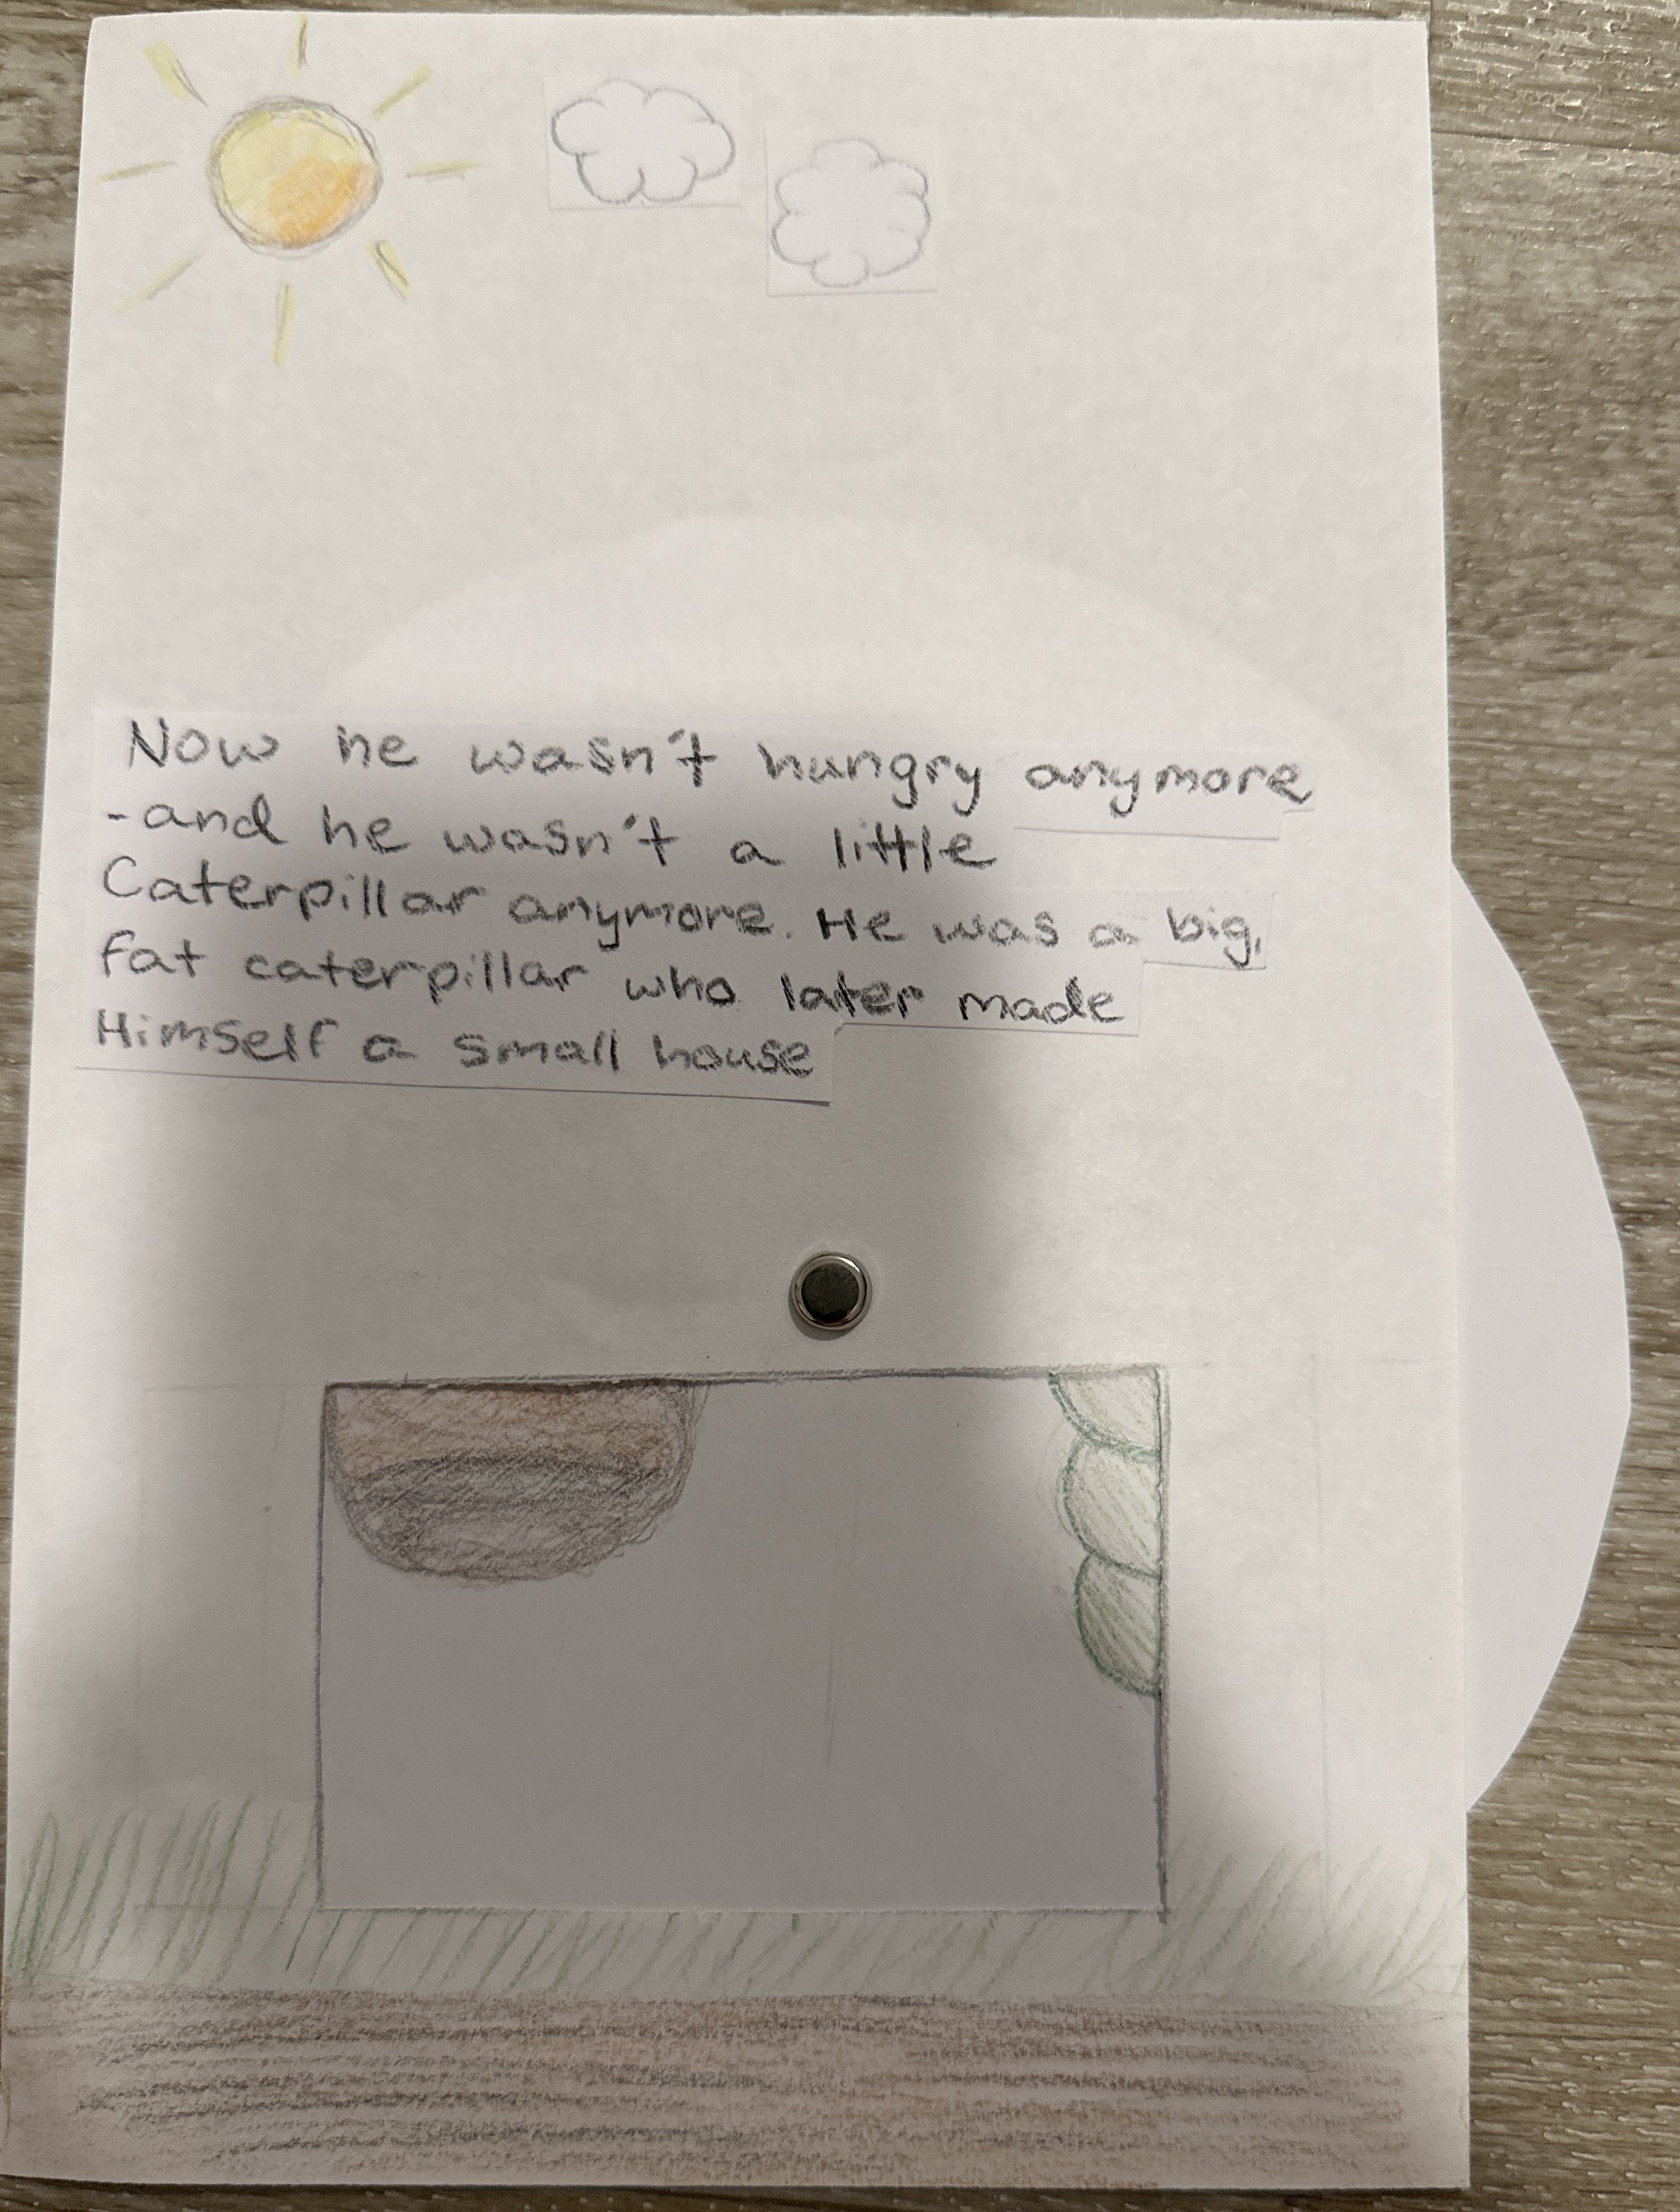 Now he wasn't hungry anymore
-and he wasn't a little
Caterpillar anymore. He was a big,
fat caterpillar who later made
Himself a small house